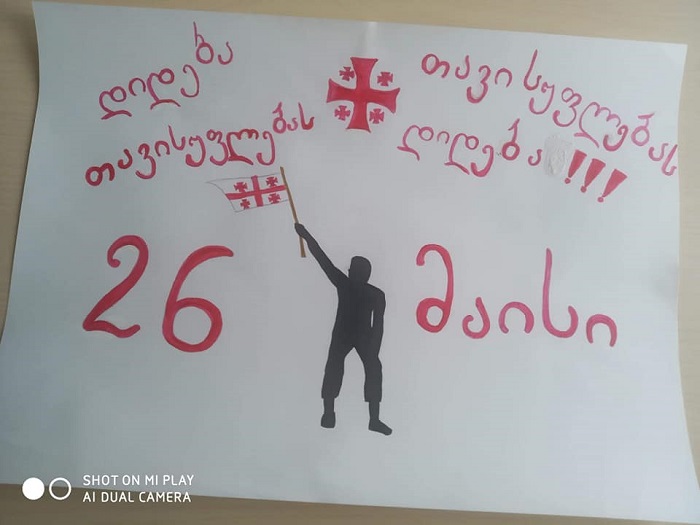 დიდება
თავისუფლებას
თავისუფლებას
დიდება !!!
26 მაისი
SHOT ON MI PLAY
AI DUAL CAMERA